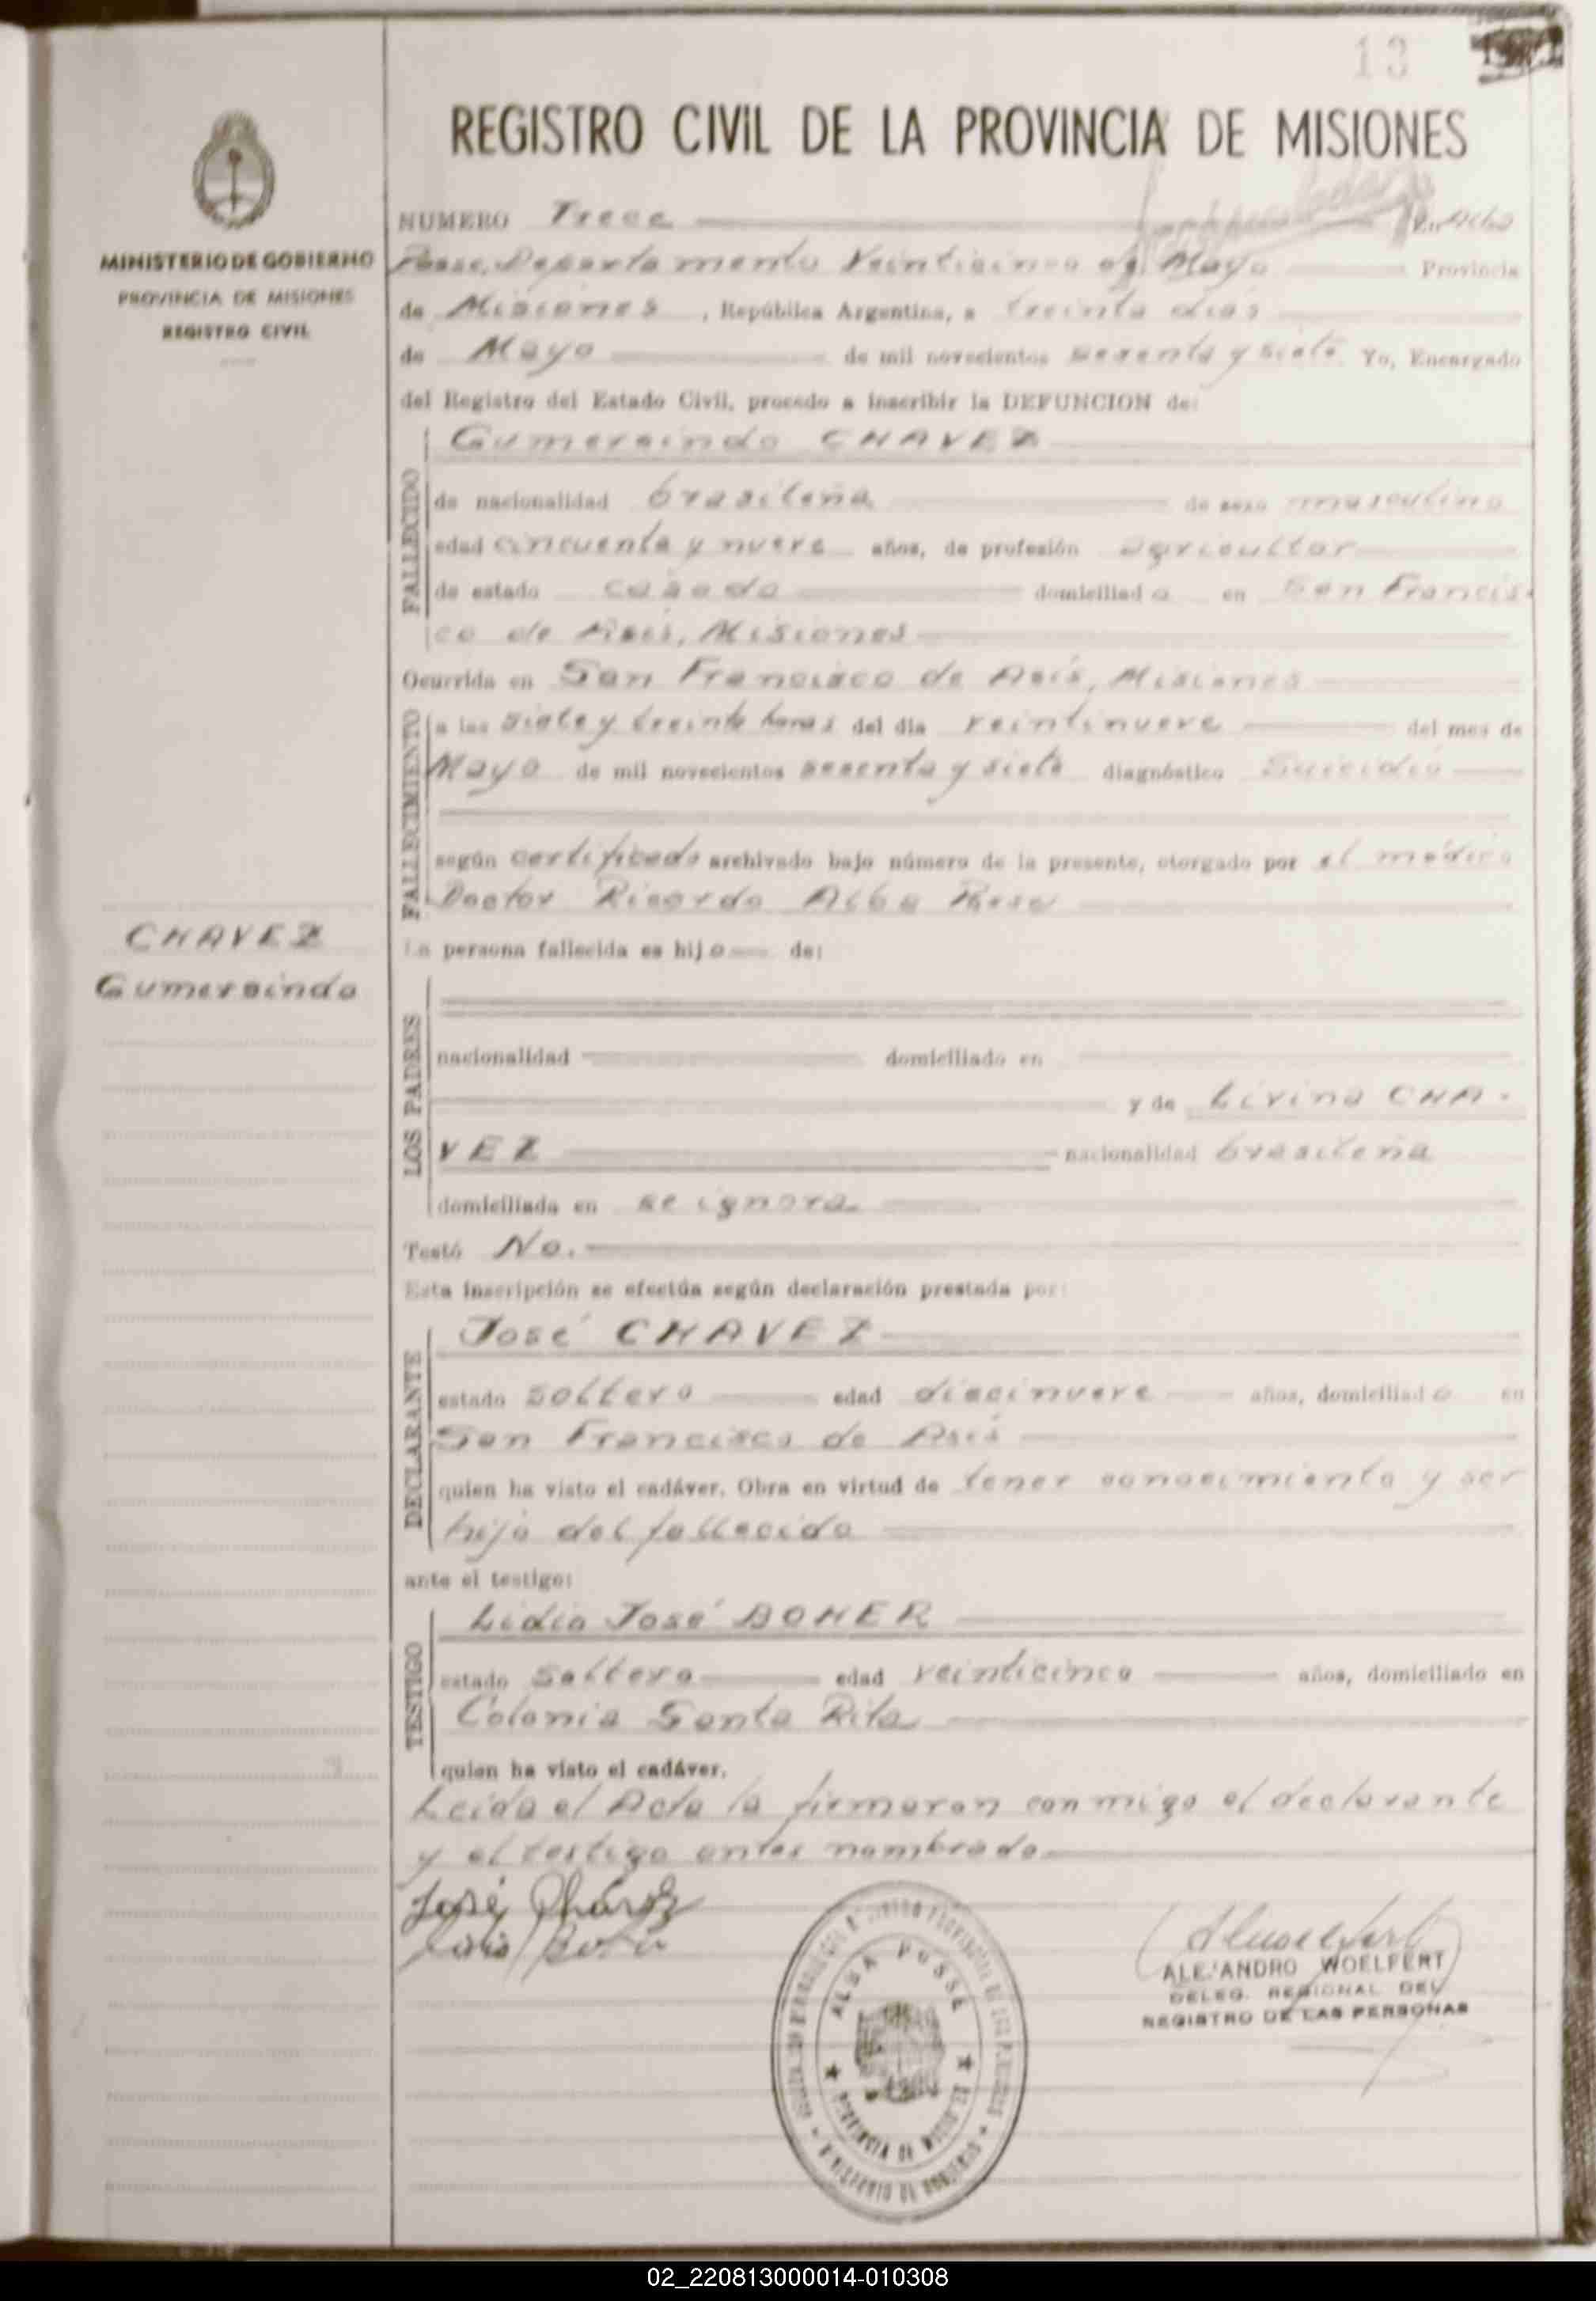 13
REGISTRO CIVIL DE LA PROVINCIA DE MISIONES
MINISTERIO DE GOBIERNO
PROVINCIA DE MISIONES
REGISTRO CIVIL
NUMERO Trece En Alba
Posse, Departamento Veinticinco de Mayo Provincia
de Misiones, República Argentina, a treinta días
de Mayo de mil novecientos sesenta y siete Yo, Encargado
del Registro del Estado Civil, procedo a inscribir la DEFUNCION de:
FALLECIDO
Gumersindo CHAVEZ
de nacionalidad brasileña de sexo masculino
edad cincuenta y nueve años, de profesión agricultor
de estado casado domiciliado en San Francis-
co de Asis, Misiones
Ocurrida en San Francisco de Asís, Misiones
FALLECIMIENTO
a las siete y treinta horas del dia veintinueve del mes de
Mayo de mil novecientos sesenta y siete diagnóstico Suicidio
según certificado archivado bajo número de la presente, otorgado por el médico
Doctor Ricardo Alba Posse
CHAVEZ
Gumersindo
La persona fallecida es hijo de:
LOS PADRES
nacionalidad domiciliado en
y de Livina CHA-
VEZ nacionalidad brasileña
domiciliada en se ignora
Testó No.
Esta inscripción se efectúa según declaración prestada por:
DECLARANTE
José CHAVEZ
estado soltero edad diecinueve años, domiciliado en
San Francisco de Asís
quien ha visto el cadáver. Obra en virtud de tener conocimiento y ser
hijo del fallecido
ante el testigo:
TESTIGO
Lidio José BOHER
estado soltero edad veinticinco años, domiciliado en
Colonia Santa Rita
quien ha visto el cadáver.
Leida el Acta la firmaron conmigo el declarante
y el testigo antes nombrado
José Chávez
ALBA POSSE
PROVINCIA DE MISIONES
MINISTERIO DE GOBIERNO
ALEJANDRO WOELFERT
DELEG. REGIONAL DEL
REGISTRO DE LAS PERSONAS
02_220813000014-010308